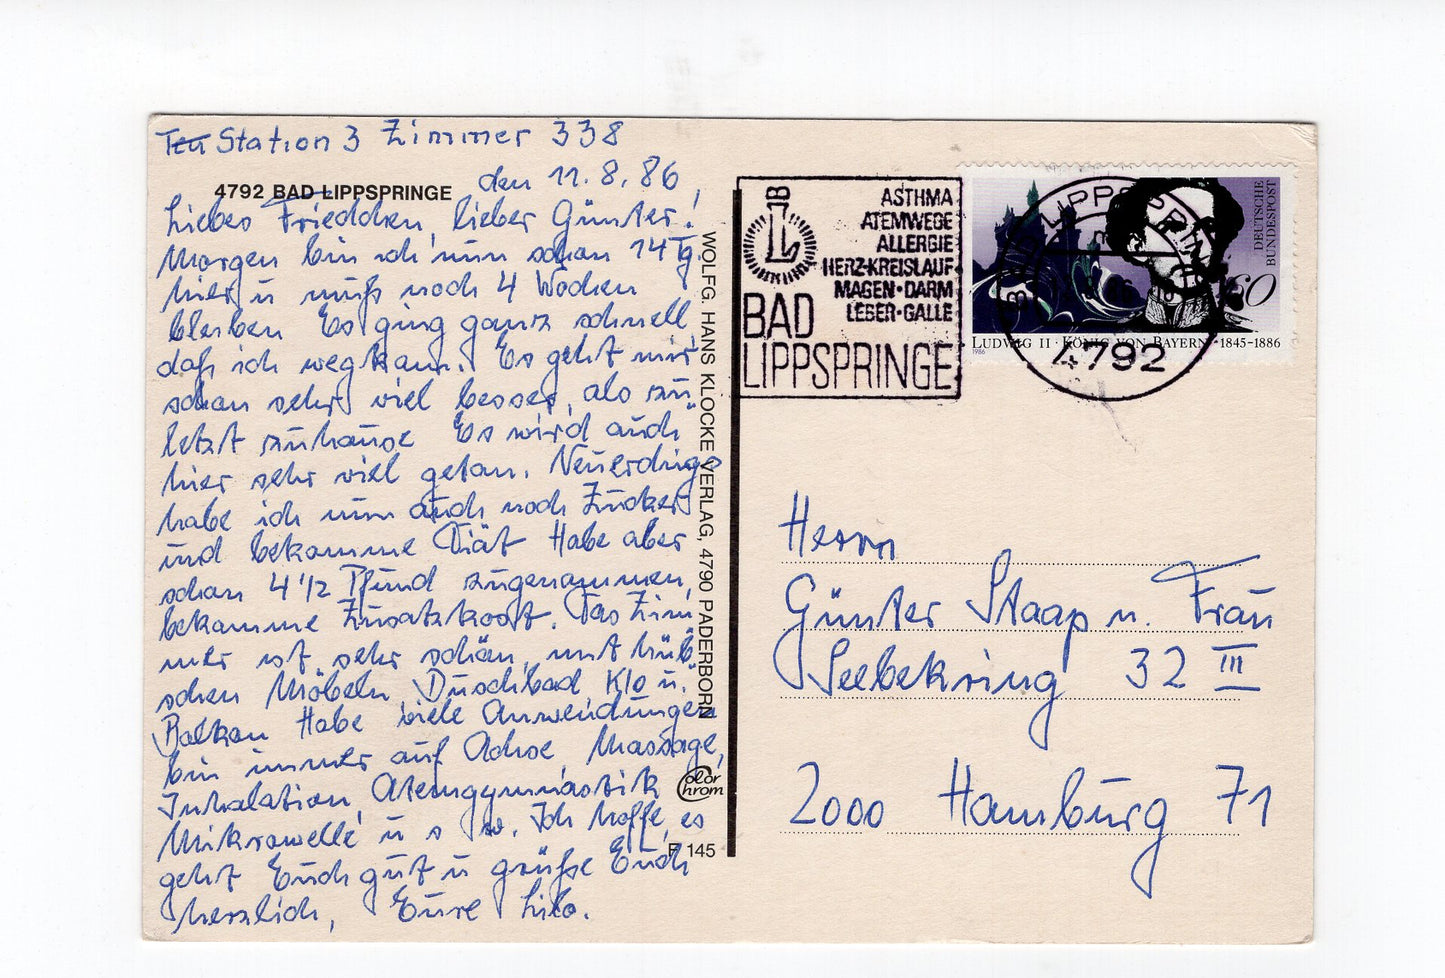 Station 3 Zimmer 338
den 11.8.86
4792 BAD LIPPSPRINGE
Liebes Friedchen, lieber Günter!
Morgen bin ich nun schon 14 Tg.
hier u muß noch 4 Wochen
bleiben Es ging ganz schnell,
daß ich wegkam. Es geht mir
schon sehr viel besser, als zu
letzt zuhause Es wird auch
hier sehr viel getan. Neuerdings
habe ich nun auch noch Zucker
und bekomme Diät Habe aber
schon 4 1/2 Pfund zugenommen,
bekomme Zusatzkost. Das Zim
mer ist sehr schön, mit hüb
schen Möbeln, Duschbad, Klo u.
Balkon Habe viele Anwendungen
bin immer auf Achse, Massage,
Inhalation, Atemgymnastik
Mikrowelle u s w. Ich hoffe, es
geht Euch gut u grüße Euch
herzlich, Eure Lilo.
WOLFG. HANS KLOCKE VERLAG, 4790 PADERBORN
Color
Chrom
F 145
ASTHMA
ATEMWEGE
ALLERGIE
HERZ-KREISLAUF
MAGEN·DARM
LEBER·GALLE
BAD
LIPPSPRINGE
BAD LIPPSPRINGE
4792
DEUTSCHE
BUNDESPOST
60
LUDWIG II · KÖNIG VON BAYERN · 1845–1886
1986
Herrn
Günter Staap u. Frau
Seebekring 32 III
2000 Hamburg 71